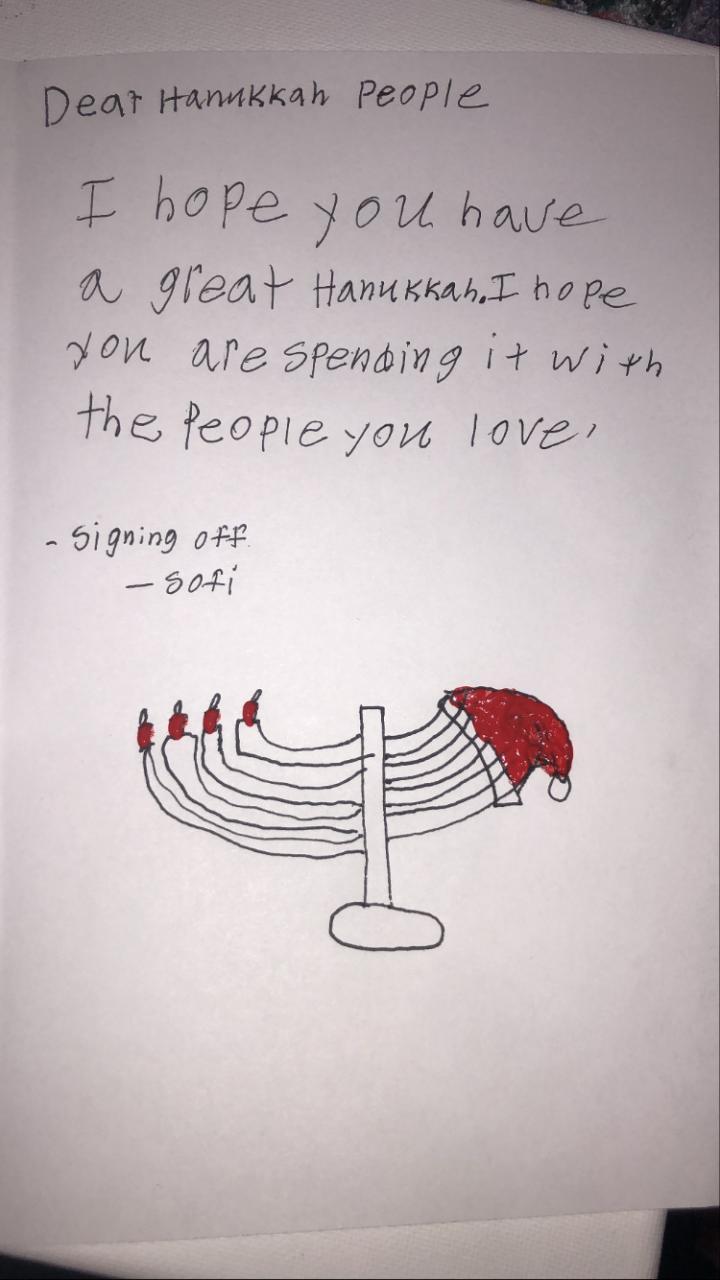 Dear Hanukkah People
I hope you have
a great Hanukkah. I hope
you are spending it with
the People you love,
- Signing off
- Sofi